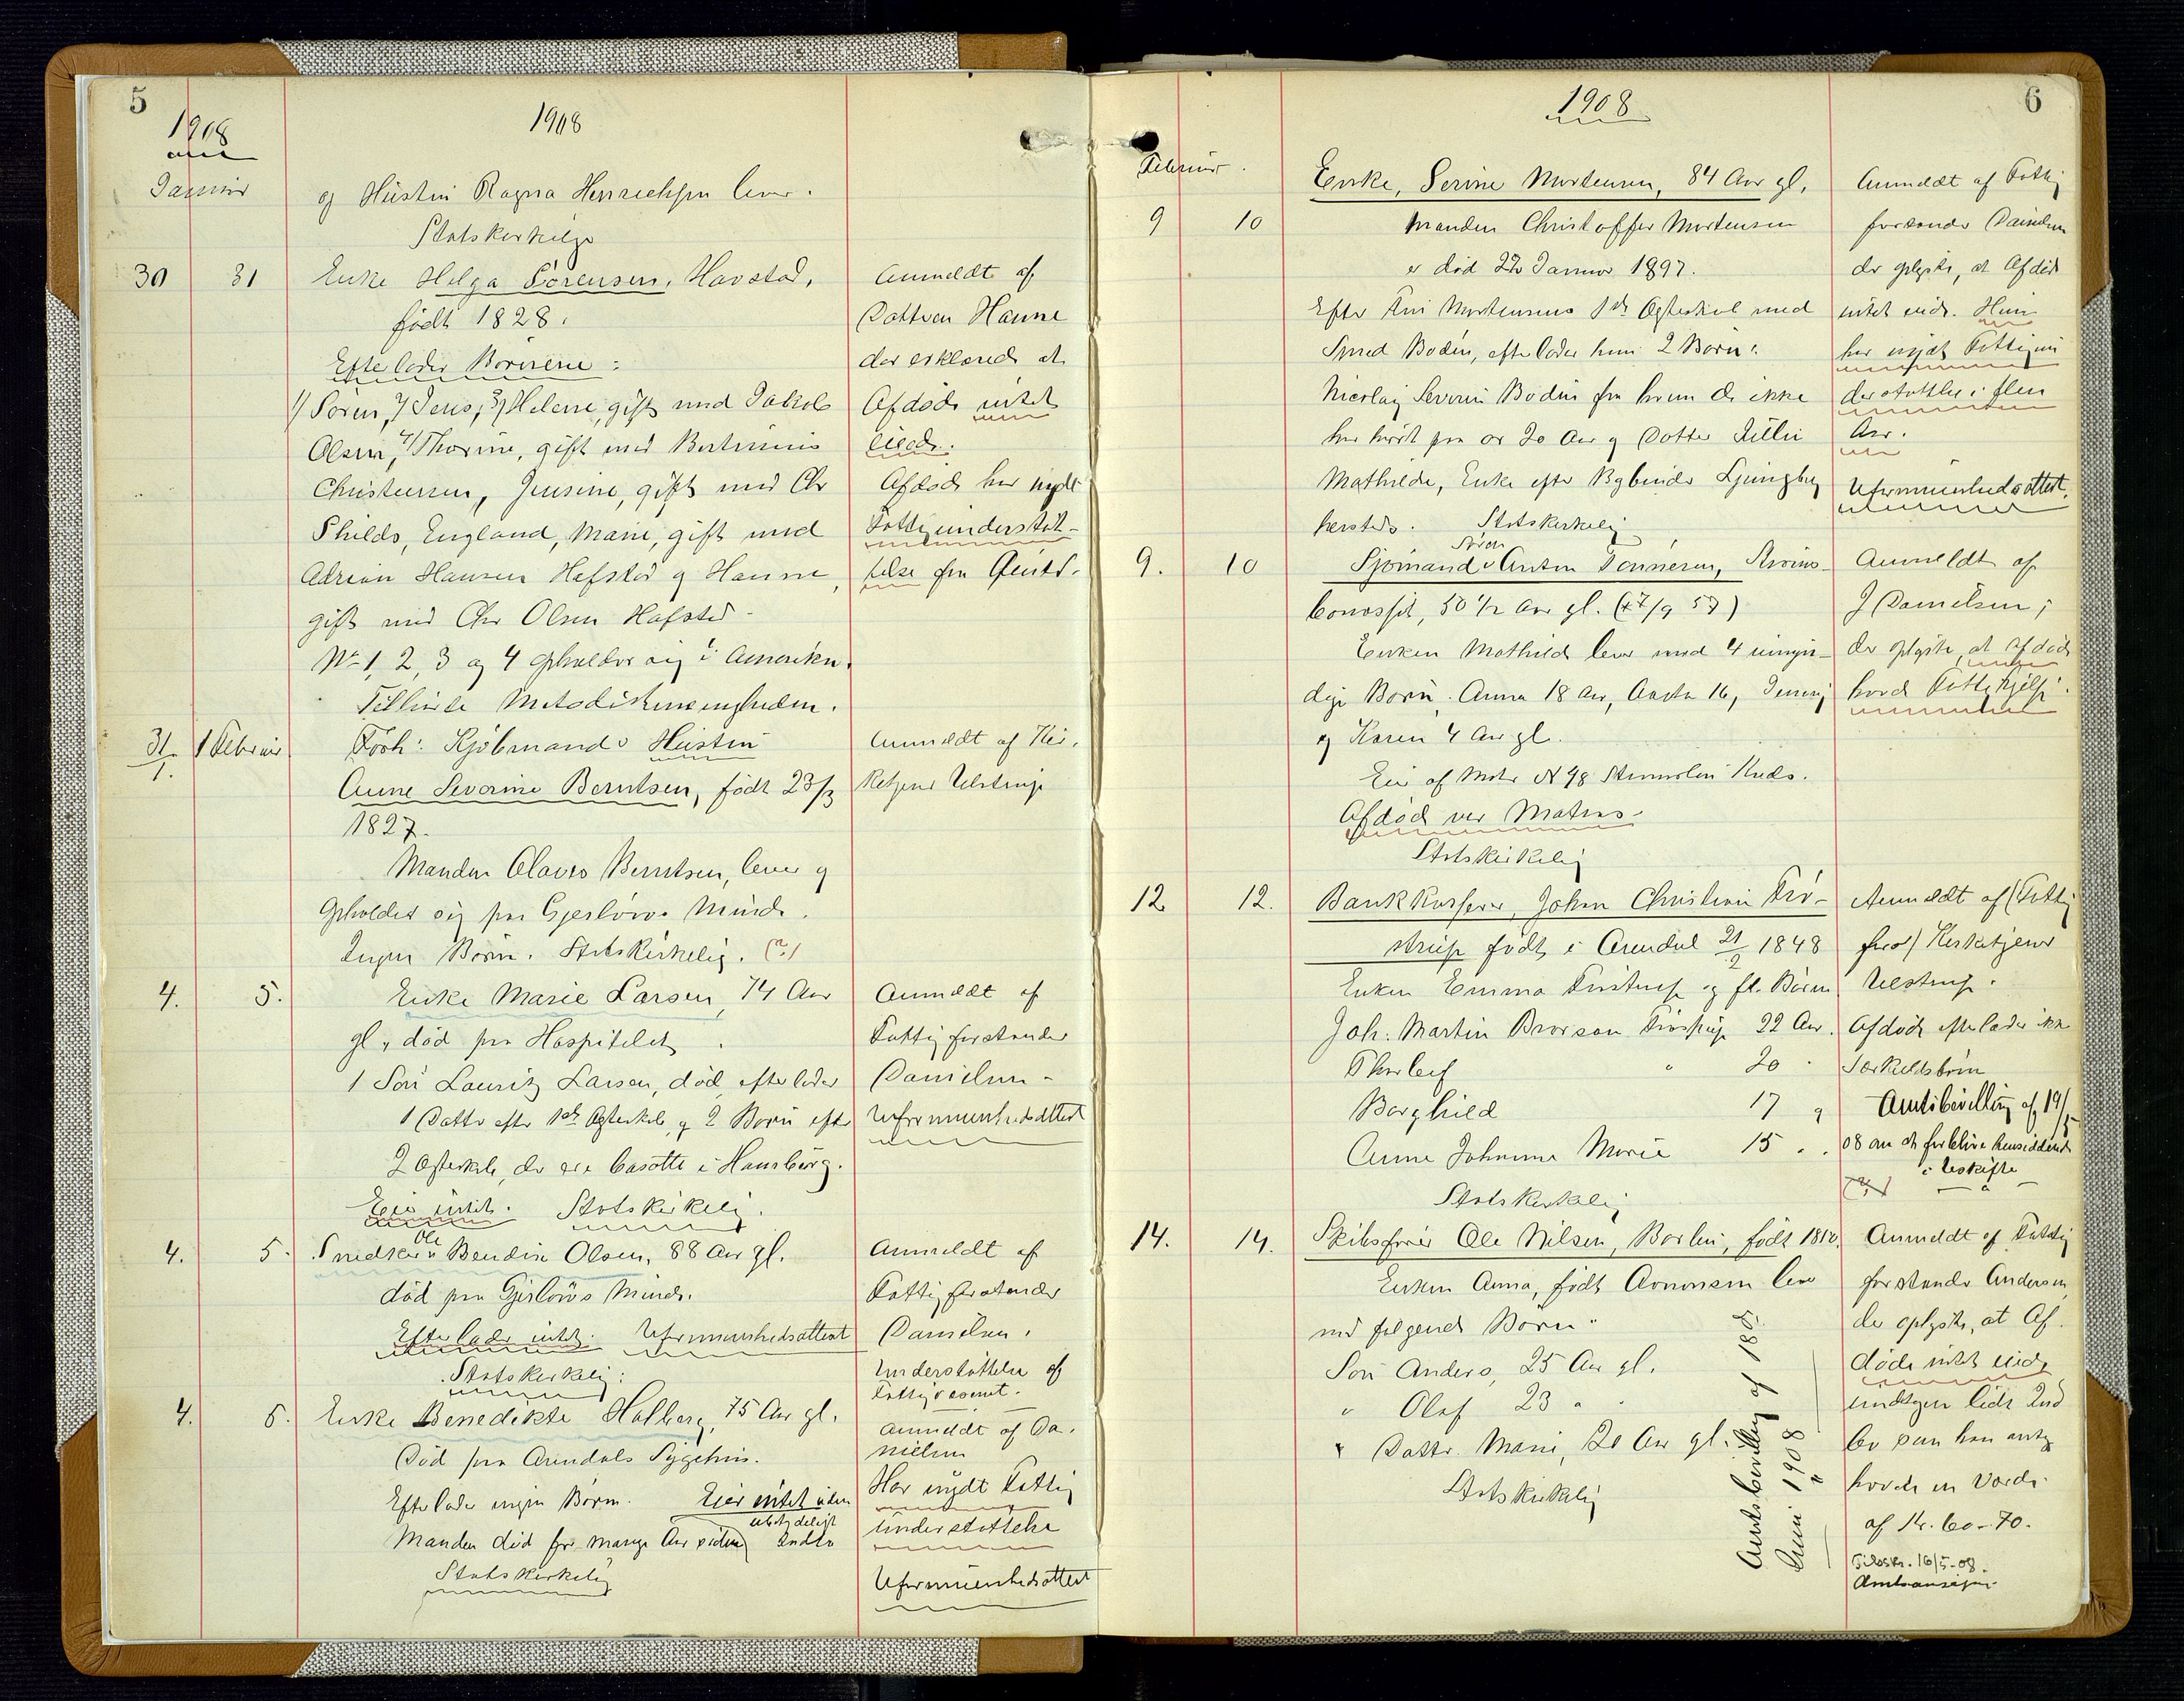 5
1908
1908
Januar
og Hustru Ragna Henrichsen lever.
Statskirkelig
30 31 Enke Helga Sørensen, Havstad,
født 1828.
Efterlader Børnene:
1/ Søren, 2/ Jens, 3/ Helene, gift med Jakob
Olsen, 4/ Thorine, gift med
Christensen, Jensine, gift med Chr
Shields, England, Marie, gift med
Adrian Hansen Hafstad og Hanne,
gift med Chr Olsen Hafstad
No 1, 2, 3 og 4 opholder sig i Amerika.
Tilhørte Metodistmenigheden.
Anmeldt af
Datteren Hanne
der erklærede at
Afdøde intet
eiede.
Afdøde har nydt
Fattigunderstøt-
telse fra
31/1. 1 Februar Forh: Kjøbmands Hustru
Anne Severine Berntsen, født 23/3
1827.
Manden Olaves Berntsen, lever og
opholder sig paa Gjerløws Minde.
Ingen Børn. Statskirkelig. (?)
Anmeldt af Kir-
ketjener Ulstrup
4. 5. Enke Marie Larsen, 74 Aar
gl, død paa Hospitalet.
1 Søn Lauritz Larsen, død, efterlader
1 Datter efter 1ste Ægteskab, og 2 Børn efter
2 Ægteskab, der ere bosatte i Hamburg.
Eier intet. Statskirkelig.
Anmeldt af
Fattigforstander
Danielsen
Uformuenhedsattest
4. 5. Snedker Ole Bendix Olsen, 88 Aar gl.
død paa Gjerløws Minde.
Efterlader intet. Uformuenhedsattest
Statskirkelig.
Anmeldt af
Fattigforstander
Danielsen.
Understøttelse af
Fattigvæsenet.
4. 5. Enke Benedikte Holberg, 75 Aar gl.
Død paa Arendals Sygehus.
Efterlader ingen Børn. Eier intet uden
ubetydeligt
Manden død for mange Aar siden Indbo
Statskirkelig
Anmeldt af Da-
nielsen
Har nydt Fattig
understøttelse
Uformuenhedsattest
6
1908
Februar.
Enke, Serine Mortensen, 84 Aar gl,
9 10 Manden Christoffer Mortensen
er død 22 Januar 1897.
Efter Fru Mortensens 1ste Ægteskab med
Smed Bodin, efterlader hun 2 Børn:
Nicolay Severin Bodin fra hvem de ikke
har hørt paa ca 20 Aar og Datter Lilli
Mathilde, Enke efter Bybud Ljungberg
hersteds. Statskirkelig
Anmeldt af Fattig
forstander Danielsen
der oplyste, at Afdøde
intet eide. Hun
har nydt Fattigun
derstøttelse i flere
Aar.
Uformuenhedsattest.
9. 10 Sjømand Anton Tønnesen, Strøms-
bonosset, 50 1/2 Aar gl. (27/9 57)
Enken Mathilde lever med 4 umyn-
dige Børn: Anna 18 Aar, Aasta 16, Jenny
og Karen 4 Aar gl.
Eier af Matr No 98 Strømsbu Kreds.
Afdøde var Matros.
Statskirkelig
Anmeldt af
J Danielsen;
der oplyste, at afdøde
ingen
havde Fattighjelp.
12 12. Bankkasserer Johan Christian Frø-
strup født i Arendal 21/2 1848
Enken Emma Frøstrup og fl. Børn
Joh. Martin Brorson Frøstrup 22 Aar.
Thorleif " 20 "
Borghild 17 og
Anne Johanne Marie 15 "
Statskirkelig
Anmeldt af (Fattig
forst) Kirketjener
Ulstrup.
Afdøde efterlader ikke
Særkuldsbørn
Amtsbevilling af 19/5
08 om at forblive hensiddende
i Uskifte
(?)
14. 14. Skibsfører Ole Nilsen, Barbu, født 1850.
Enken Anna, født Aronsen lever
med følgende Børn:
Søn Anders, 25 Aar gl.
" Olaf 23 "
" Datter Marie, 20 Aar gl.
Statskirkelig
Amtsbevilling af 18de
Juni 1908
Anmeldt af Fattig
forstander Andersen,
der oplyste, at Af-
døde intet eide
undtagen lidt Ind
bo som han antog
havde en Værdi
af Kr. 60-70.
Tilskr. 16/5-08.